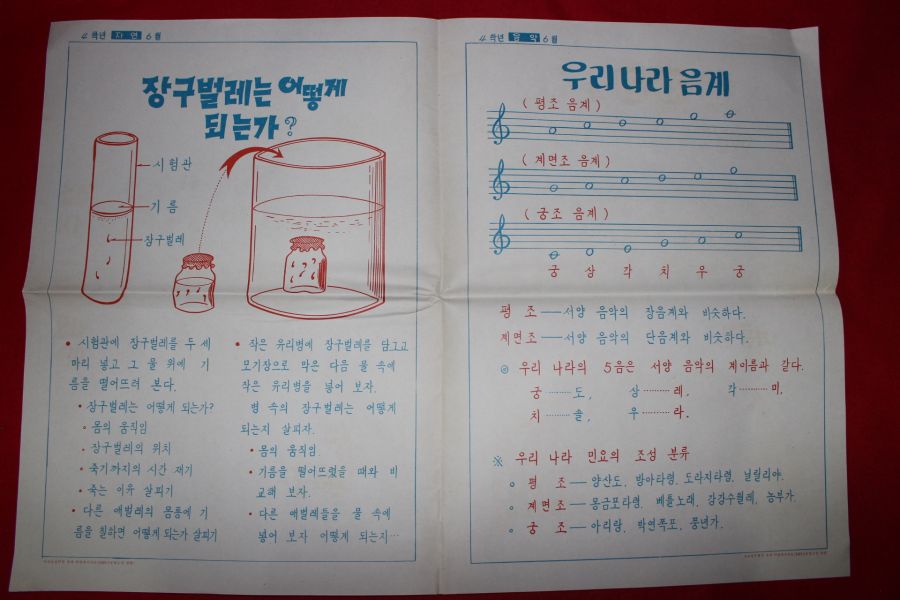 4 학년 자연 6 월
장구벌레는 어떻게
되는가?
시험관
기름
장구벌레
• 시험관에 장구벌레를 두 세
마리 넣고 그 물 위에 기
름을 떨어뜨려 본다.
• 장구벌레는 어떻게 되는가?
• 몸의 움직임
• 장구벌레의 위치
• 죽기까지의 시간 재기
• 죽는 이유 살피기
• 다른 애벌레의 몸통에 기
름을 칠하면 어떻게 되는가 살피기
• 작은 유리병에 장구벌레를 담그고
모기장으로 막은 다음 물 속에
작은 유리병을 넣어 보자.
병 속의 장구벌레는 어떻게
되는지 살피자.
• 몸의 움직임
• 기름을 떨어뜨렸을 때와 비
교해 보자.
• 다른 애벌레들을 물 속에
넣어 보자 어떻게 되는지…
4 학년 음악 6 월
우리 나라 음계
( 평조 음계 )
( 계면조 음계 )
( 궁조 음계 )
궁 상 각 치 우 궁
평 조 ── 서양 음악의 장음계와 비슷하다.
계면조 ── 서양 음악의 단음계와 비슷하다.
◎ 우리 나라의 5음은 서양 음악의 계이름과 같다.
궁 ……… 도, 상 ……… 레, 각 ……… 미,
치 ……… 솔, 우 ……… 라.
※ 우리 나라 민요의 조성 분류
○ 평 조 ── 양산도, 방아타령, 도라지타령, 닐릴리야.
○ 계면조 ── 몽금포타령, 베틀노래, 강강수월레, 농부가.
○ 궁 조 ── 아리랑, 박연폭포, 풍년가.